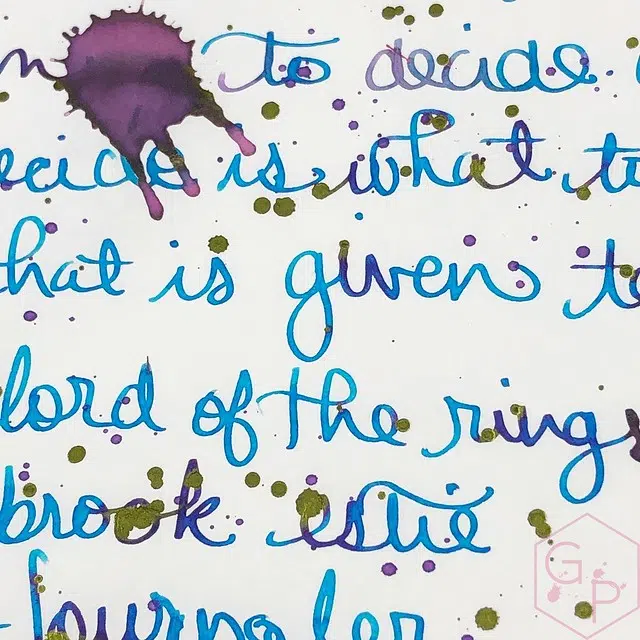 to decide
ecide is what to
hat is given to
lord of the rings
brook estie
Journaler
G
P